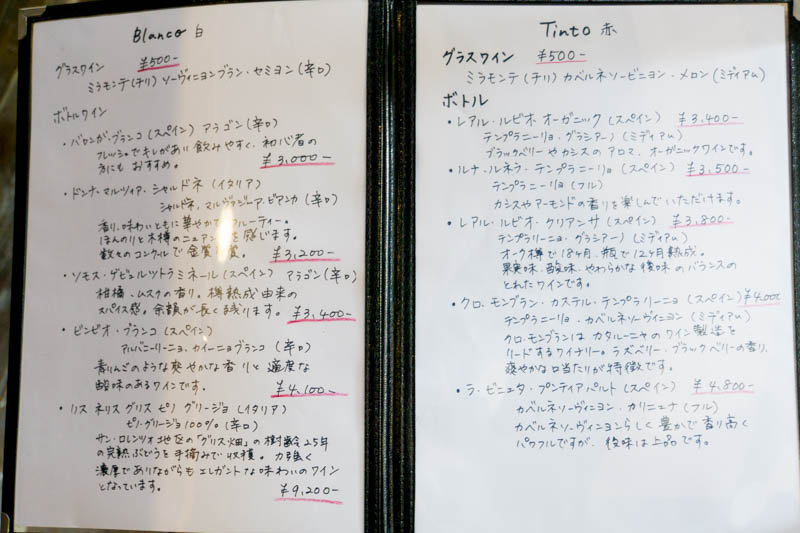 Blanco 白
グラスワイン ¥500-
ミラモンテ(チリ) ソーヴィニヨンブラン・セミヨン(辛口)
ボトルワイン
・バロンガ・ブランコ(スペイン) アラゴン(辛口)
フレッシュでキレがあり飲みやすく、初心者の
方にもおすすめ。 ¥3,000-
・ドンナ・マルツィア・シャルドネ(イタリア)
シャルドネ、マルヴァジーア・ビアンカ(辛口)
香り、味わいともに華やかでフルーティー。
ほんのりと木樽のニュアンスを感じます。
数々のコンクールで金賞 賞。 ¥3,200-
・ソモス・ゲビュルツトラミネール(スペイン) アラゴン(辛口)
柑橘・ムスクの香り。樽熟成由来の
スパイス感。余韻が長く残ります。 ¥3,400-
・ビンビオ・ブランコ(スペイン)
アルバニーリーニョ、カイーニョブランコ(辛口)
青りんごのような爽やかな香りと適度な
酸味のあるワインです。 ¥4,100-
・リス ネリス グリス ピノ グリージョ(イタリア)
ピノ・グリージョ100%(辛口)
サン・ロレンツォ地区の「グリス畑」の樹齢25年
の完熟ぶどうを手摘みで収穫。力強く
濃厚でありながらもエレガントな味わいのワイン
となっています。 ¥9,200-
Tinto 赤
グラスワイン ¥500-
ミラモンテ(チリ) カベルネソービニヨン・メロン(ミディアム)
ボトル
・レアル・ルビオ オーガニック(スペイン) ¥3,400-
テンプラニーリョ・グラシアーノ(ミディアム)
ブラックベリーやカシスのアロマ、オーガニックワインです。
・ルナ・ルネク・テンプラニーリョ(スペイン) ¥3,500-
テンプラニーリョ(フル)
カシスやアーモンドの香りを楽しんでいただけます。
・レアル・ルビオ・クリアンサ(スペイン) ¥3,800-
テンプラリーニョ・グラシアーノ(ミディアム)
オーク樽で18ヶ月、瓶で12ヶ月熟成。
果実味、酸味、やわらかな後味のバランスの
とれたワインです。
・クロ、モンブラン・カステル・テンプラリーニョ(スペイン) ¥4,000
テンプラリーニョ・カベルネソーヴィニヨン(ミディアム)
クロ・モンブランはカタルーニャのワイン製造を
リードするワイナリー。ラズベリー・ブラックベリーの香り、
爽やかな口当たりが特徴です。
・ラ・ビニュタ・プンティアパルト(スペイン) ¥4,800-
カベルネソーヴィニヨン・カリニェナ(フル)
カベルネソーヴィニヨンらしく豊かで香り高く
パワフルですが、後味は上品です。